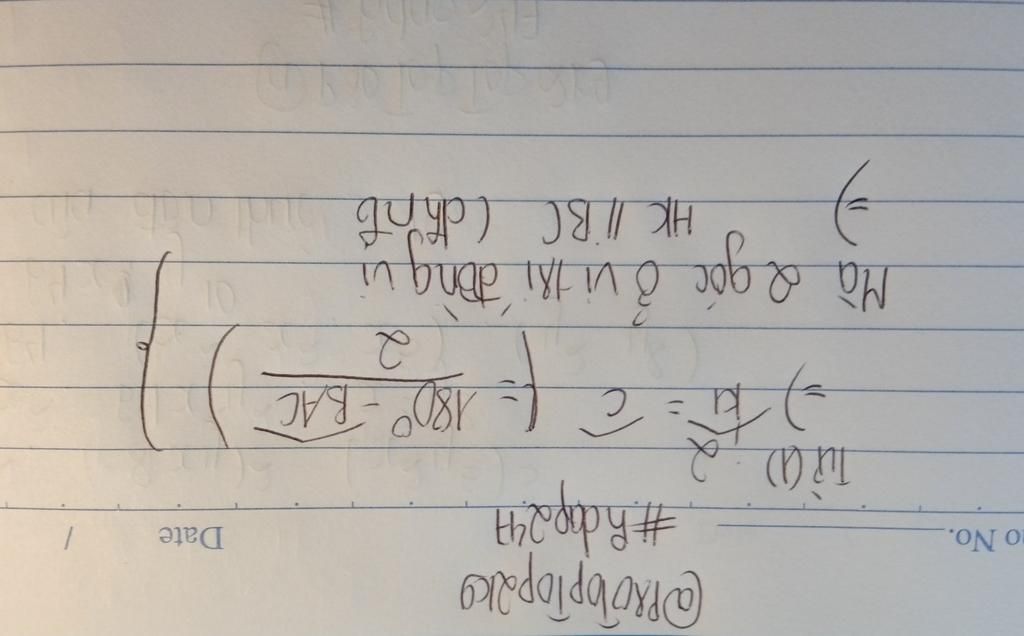 @PROTopTop2k9
#hdap247
No. Date /
Từ (1) 2
=> K1 = C (= 180° - BAC / 2)
Mà 2 góc ở vi trí đồng vi
=> HK // BC (dhnb